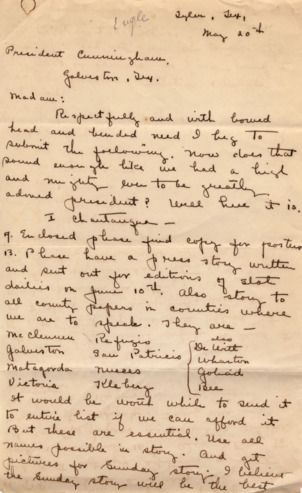 Engle
Tyler, Tex,
May 20th
President Cunningham,
Galveston, Tex.
Madam:
Respectfully and with bowed
head and bended need I beg to
submit the following. Now does that
sound enough like we had a high
and mighty even to be greatly
admired president? Well here it is.
I Chautauqua —
9. Enclosed please find copy for posters
B. Please have a press story written
and sent out for editions of
dailies on June 10th. Also story to
all county papers in counties where
we are to speak. They are —
McClennen Refugio
Galveston San Patricio
Matagorda Nueces
Victoria Kleberg
also
De Witt
Wharton
Goliad
Bee
It would be worth while to send it
to entire list if we can afford it
But these are essential. Use all
names possible in story. And get
pictures for Sunday story. I believe
the Sunday story will be the best